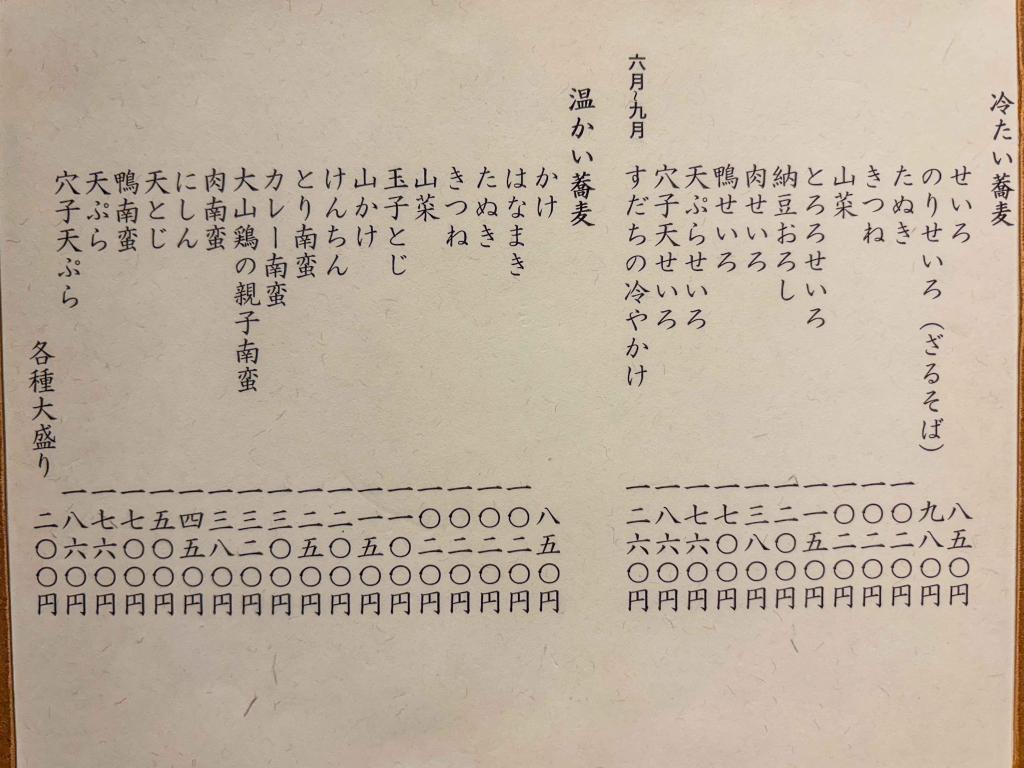 冷たい蕎麦
せいろ 八五〇円
のりせいろ（ざるそば） 九八〇円
たぬき 一〇二〇円
きつね 一〇二〇円
山菜 一〇二〇円
とろろせいろ 一一五〇円
納豆おろし 一二〇〇円
肉せいろ 一三八〇円
鴨せいろ 一七〇〇円
天ぷらせいろ 一七六〇円
穴子天せいろ 一八六〇円
六月~九月 すだちの冷やかけ 一二六〇円
温かい蕎麦
かけ 八五〇円
はなまき 一〇二〇円
たぬき 一〇二〇円
きつね 一〇二〇円
山菜 一〇二〇円
玉子とじ 一一〇〇円
山かけ 一一五〇円
けんちん 一二〇〇円
とり南蛮 一二五〇円
カレー南蛮 一三〇〇円
大山鶏の親子南蛮 一三二〇円
肉南蛮 一三八〇円
にしん 一四五〇円
天とじ 一五〇〇円
鴨南蛮 一七〇〇円
天ぷら 一七六〇円
穴子天ぷら 一八六〇円
各種大盛り 二〇〇円